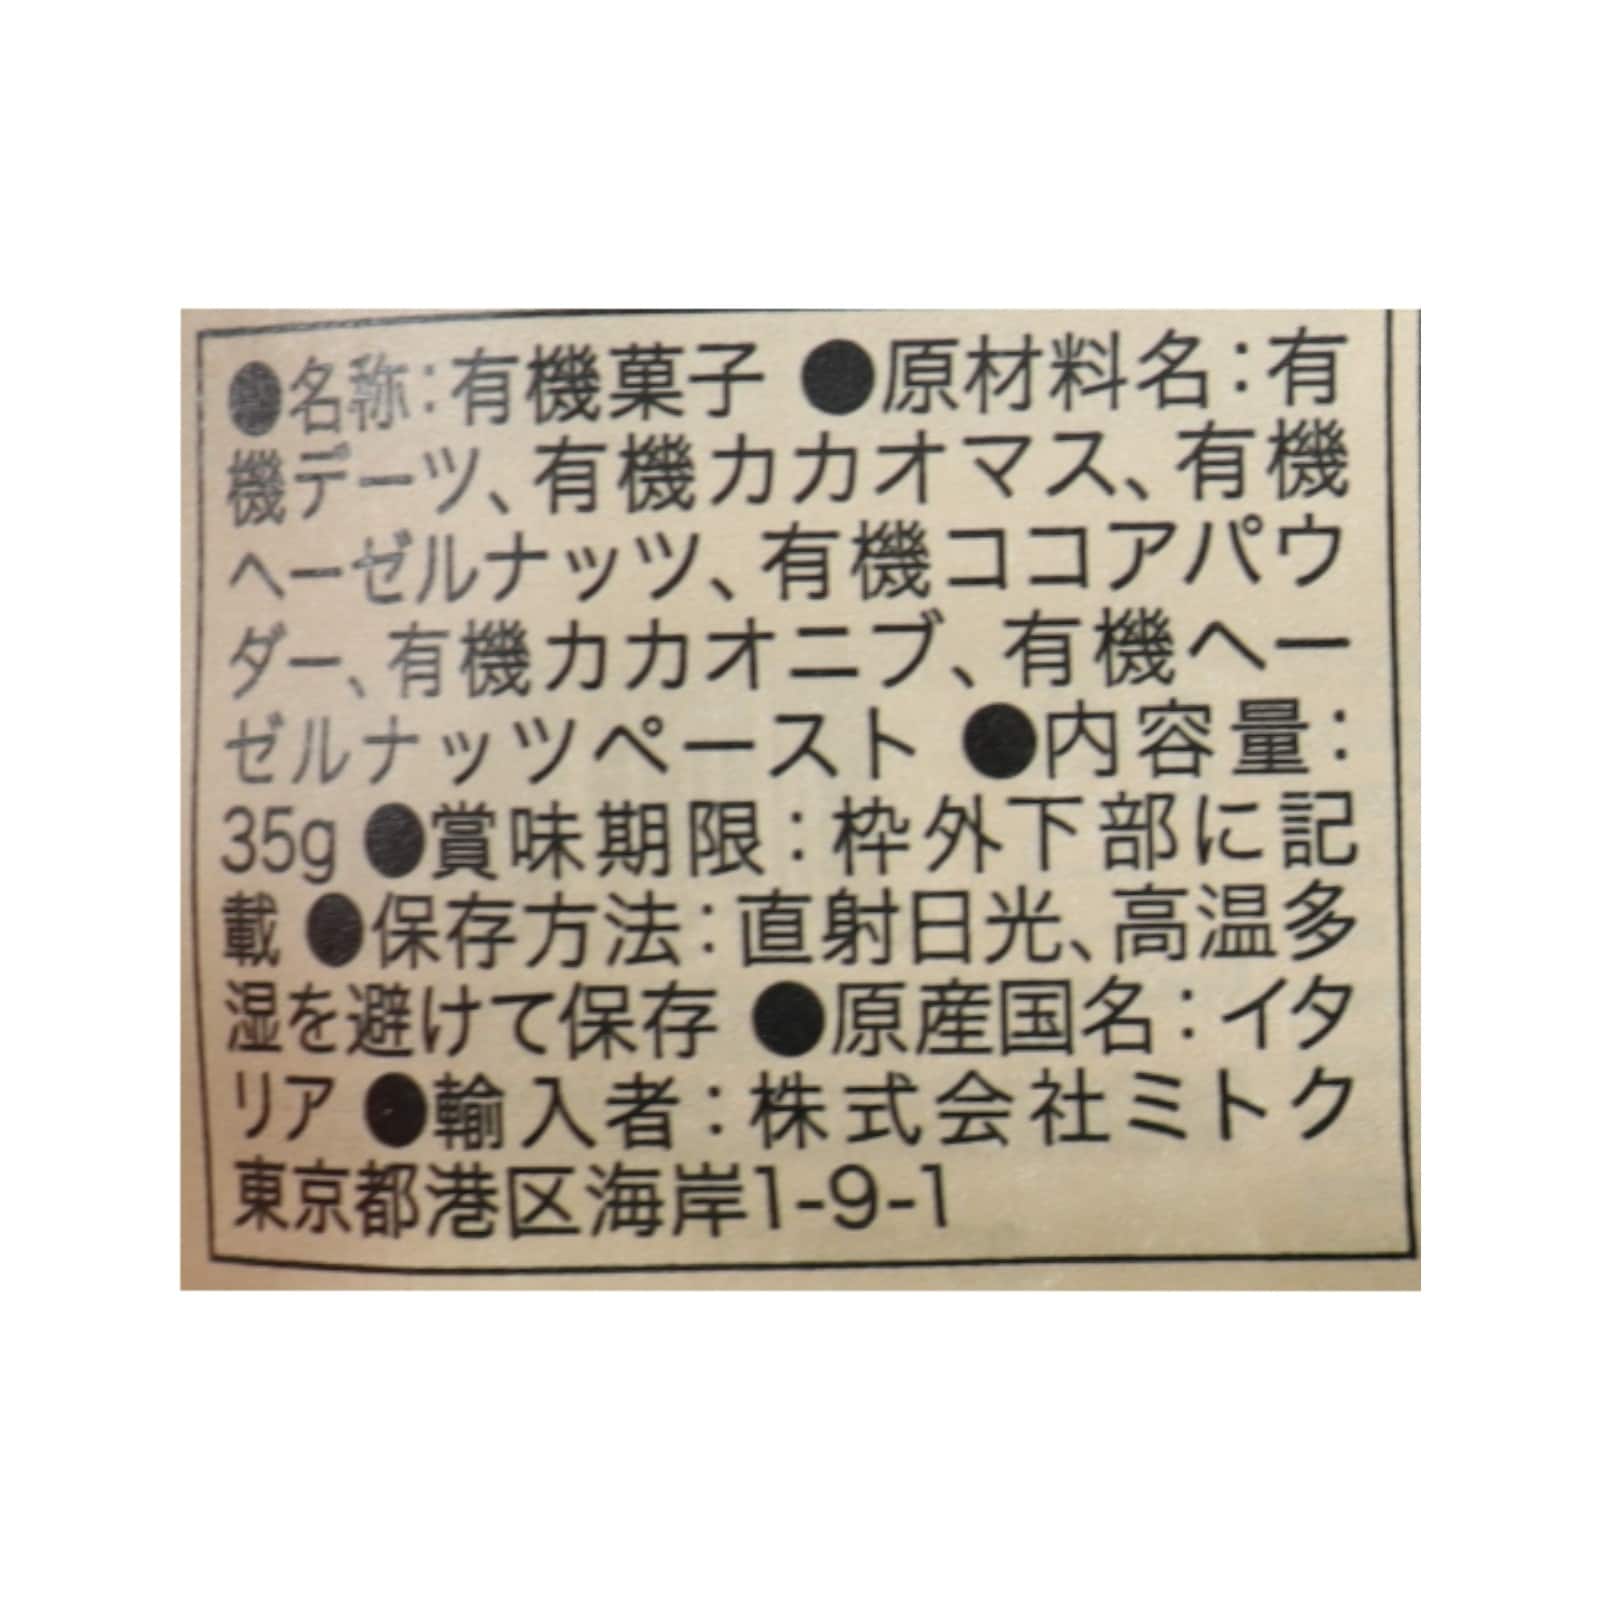 ●名称：有機菓子 ●原材料名：有
機デーツ、有機カカオマス、有機
ヘーゼルナッツ、有機ココアパウ
ダー、有機カカオニブ、有機ヘー
ゼルナッツペースト ●内容量：
35g ●賞味期限：枠外下部に記
載 ●保存方法：直射日光、高温多
湿を避けて保存 ●原産国名：イタ
リア ●輸入者：株式会社ミトク
東京都港区海岸1-9-1